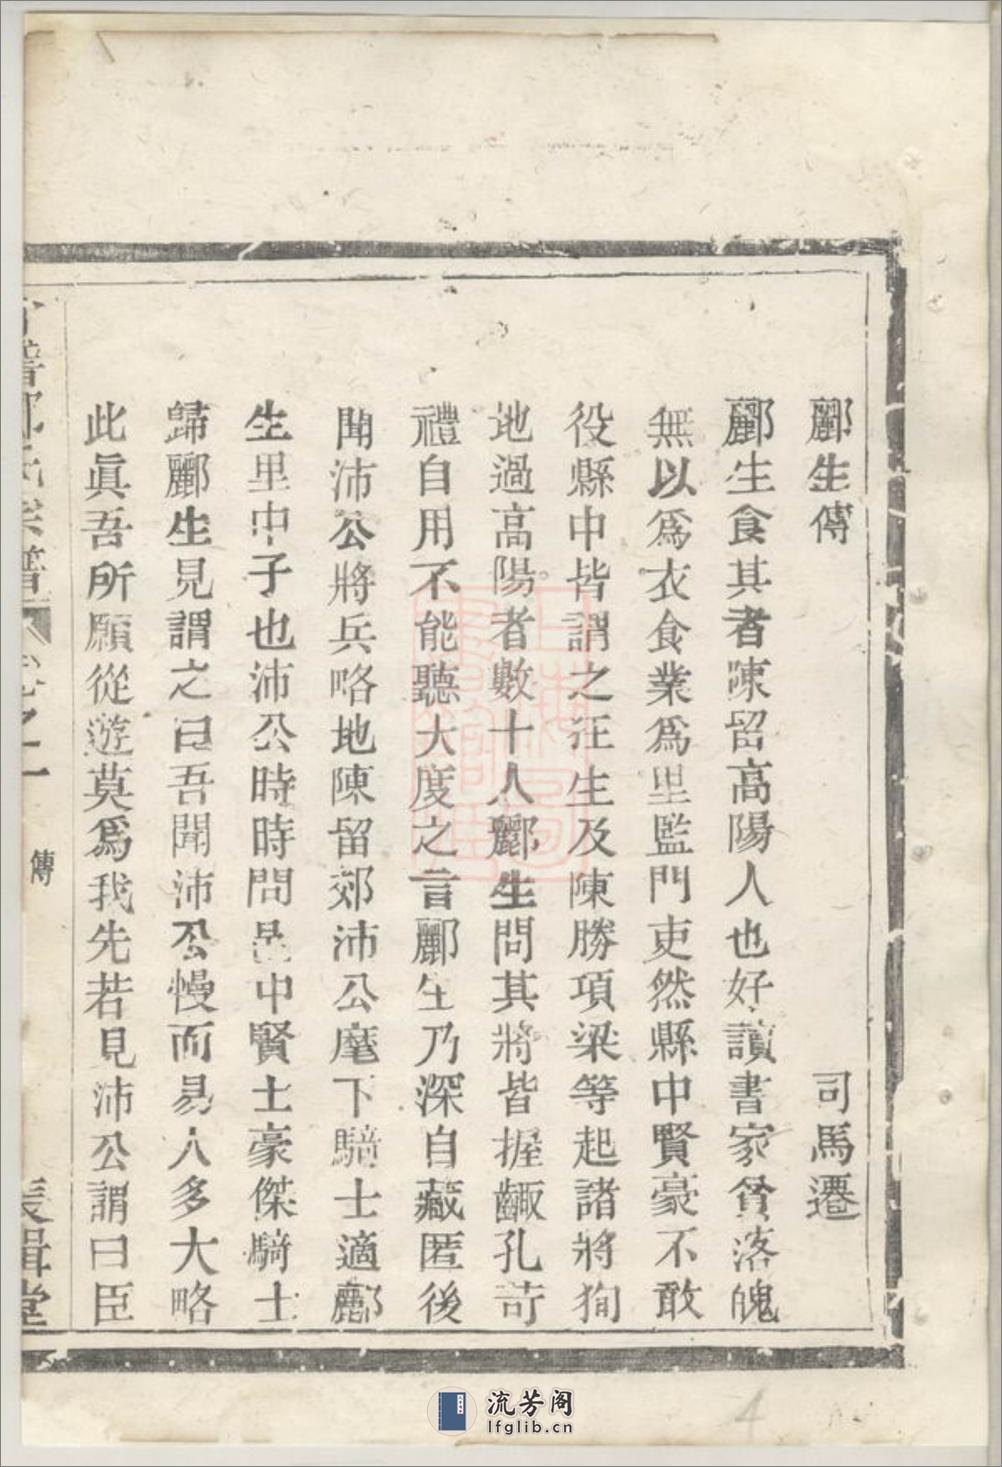 酈生傳
司馬遷
酈生食其者陳留高陽人也好讀書家貧落魄
無以爲衣食業爲里監門吏然縣中賢豪不敢
役縣中皆謂之狂生及陳勝項梁等起諸將狥
地過高陽者數十人酈生問其將皆握齱孔苛
禮自用不能聽大度之言酈生乃深自藏匿後
聞沛公將兵略地陳留郊沛公麾下騎士適酈
生里中子也沛公時時問邑中賢士豪傑騎士
歸酈生見謂之曰吾聞沛公慢而易人多大略
此眞吾所願從遊莫爲我先若見沛公謂曰臣
氏宗譜 卷之一
傳
堂
流芳阁
lfglib.cn
4